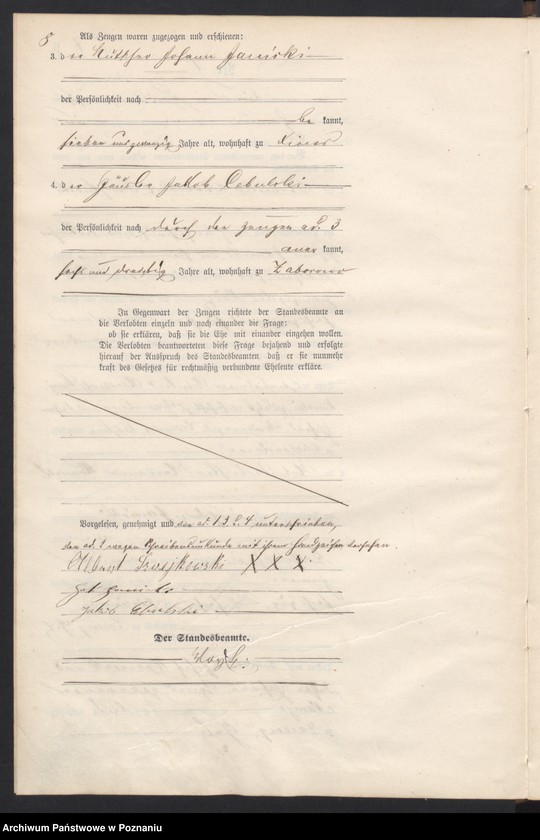 5
Als Zeugen waren zugezogen und erschienen:
3. der Kutscher Johann Janicki
der Persönlichkeit nach
be kannt,
sieben und zwanzig Jahre alt, wohnhaft zu
4. der Häusler Jakob Cebulski
der Persönlichkeit nach durch den Zeugen ad. 3
aner kannt,
sechs und dreißig Jahre alt, wohnhaft zu Zaborowo
In Gegenwart der Zeugen richtete der Standesbeamte an
die Verlobten einzeln und nach einander die Frage:
ob sie erklären, daß sie die Ehe mit einander eingehen wollen.
Die Verlobten beantworteten diese Frage bejahend und erfolgte
hierauf der Ausspruch des Standesbeamten, daß er sie nunmehr
kraft des Gesetzes für rechtmäßig verbundene Eheleute erkläre.
Vorgelesen, genehmigt und von ad. 1 3 & 4 unterschrieben,
von ad. 2 wegen Schreibensunkunde mit ihrem Handzeichen versehen.
Albert XXX
Jakob
Der Standesbeamte.
Archiwum Państwowe w Poznaniu